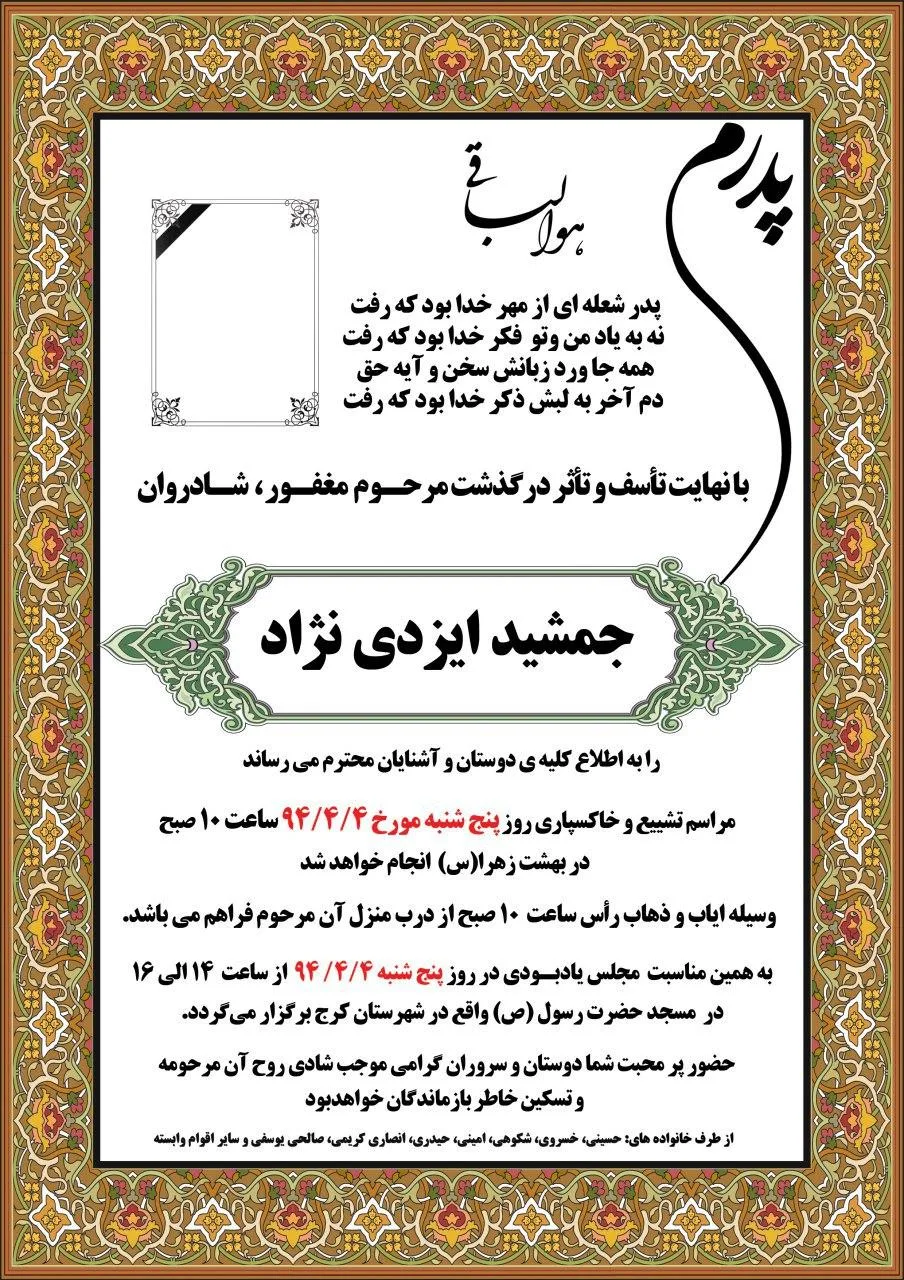 پدرم
هوالباقی
پدر شعله ای از مهر خدا بود که رفت
نه به یاد من وتو فکر خدا بود که رفت
همه جا ورد زبانش سخن و آیه حق
دم آخر به لبش ذکر خدا بود که رفت
با نهایت تأسف و تأثر درگذشت مرحـــوم مغفـــور ، شـــادروان
جمشید ایزدی نژاد
را به اطلاع کلیه ی دوستان و آشنایان محترم می رساند
مراسم تشییع و خاکسپاری روز پنج شنبه مورخ ۹۴/۴/۴ ساعت ۱۰ صبح
در بهشت زهرا(س) انجام خواهد شد
وسیله ایاب و ذهاب رأس ساعت ۱۰ صبح از درب منزل آن مرحوم فراهم می باشد.
به همین مناسبت مجلس یادبـودی در روز پنج شنبه ۹۴/۴/۴ از ساعت ۱۴ الی ۱۶
در مسجد حضرت رسول (ص) واقع در شهرستان کرج برگزار می‌گردد.
حضور پر محبت شما دوستان و سروران گرامی موجب شادی روح آن مرحومه
و تسکین خاطر بازماندگان خواهدبود
از طرف خانواده های: حسینی، خسروی، شکوهی، امینی، حیدری، انصاری کریمی، صالحی یوسفی و سایر اقوام وابسته